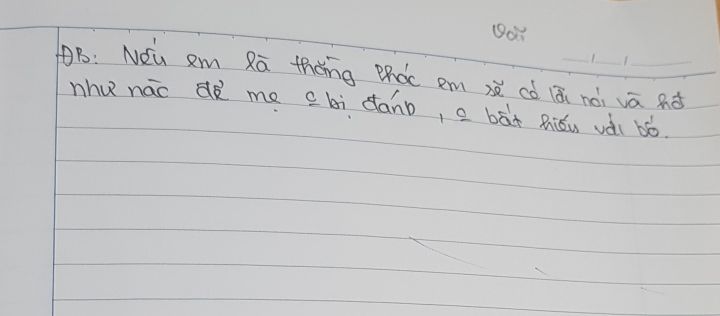 Vởi
ĐB: Nếu em là thằng Phác em sẽ có lời nói và hđ
như nào để mẹ k bị đánh, k bất hiếu với bố.